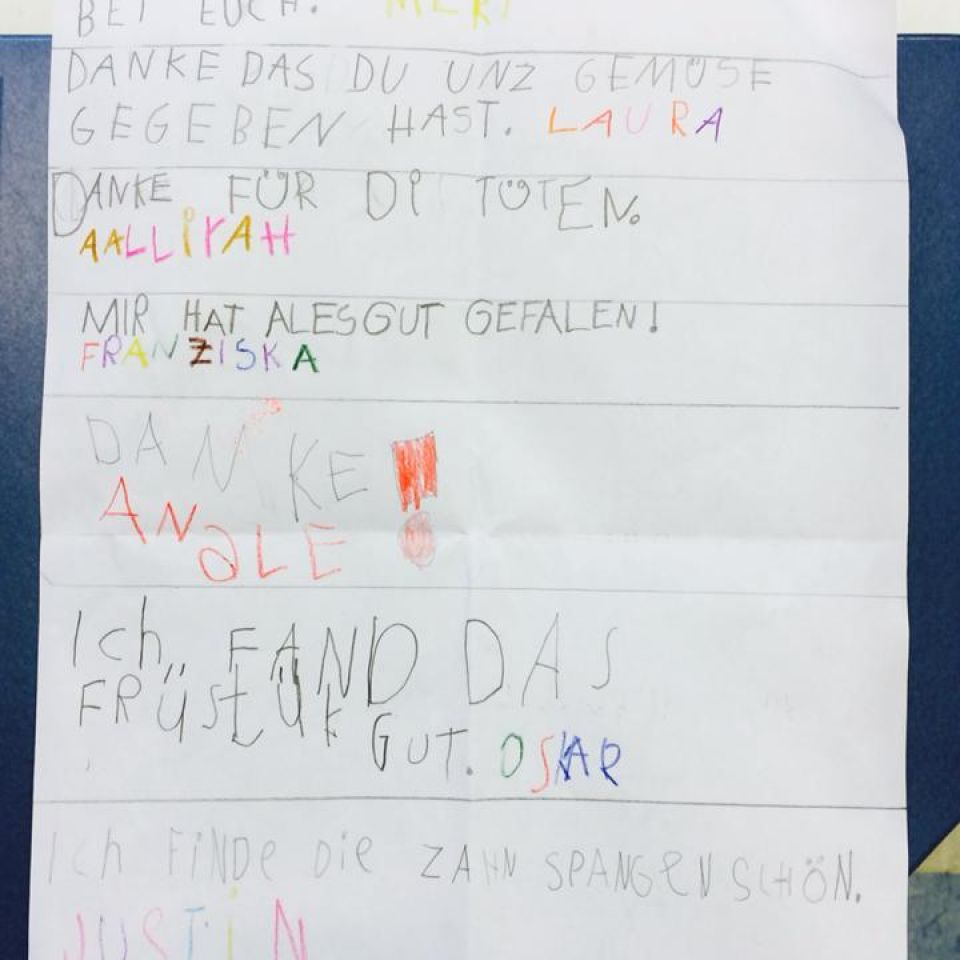 BEI EUCH. MERT
DANKE DAS DU UNZ GEMÜSE
GEGEBEN HAST. LAURA
DANKE FÜR DI TÜTEN.
AALLiYAH
MIR HAT ALES GUT GEFALEN!
FRANZISKA
DANKE!
ANALE
Ich FAND DAS
FRÜSTÜK GUT. OSKAR
Ich FiNDe Die ZAHN SPANGEN SCHÖN.
JUSTiN